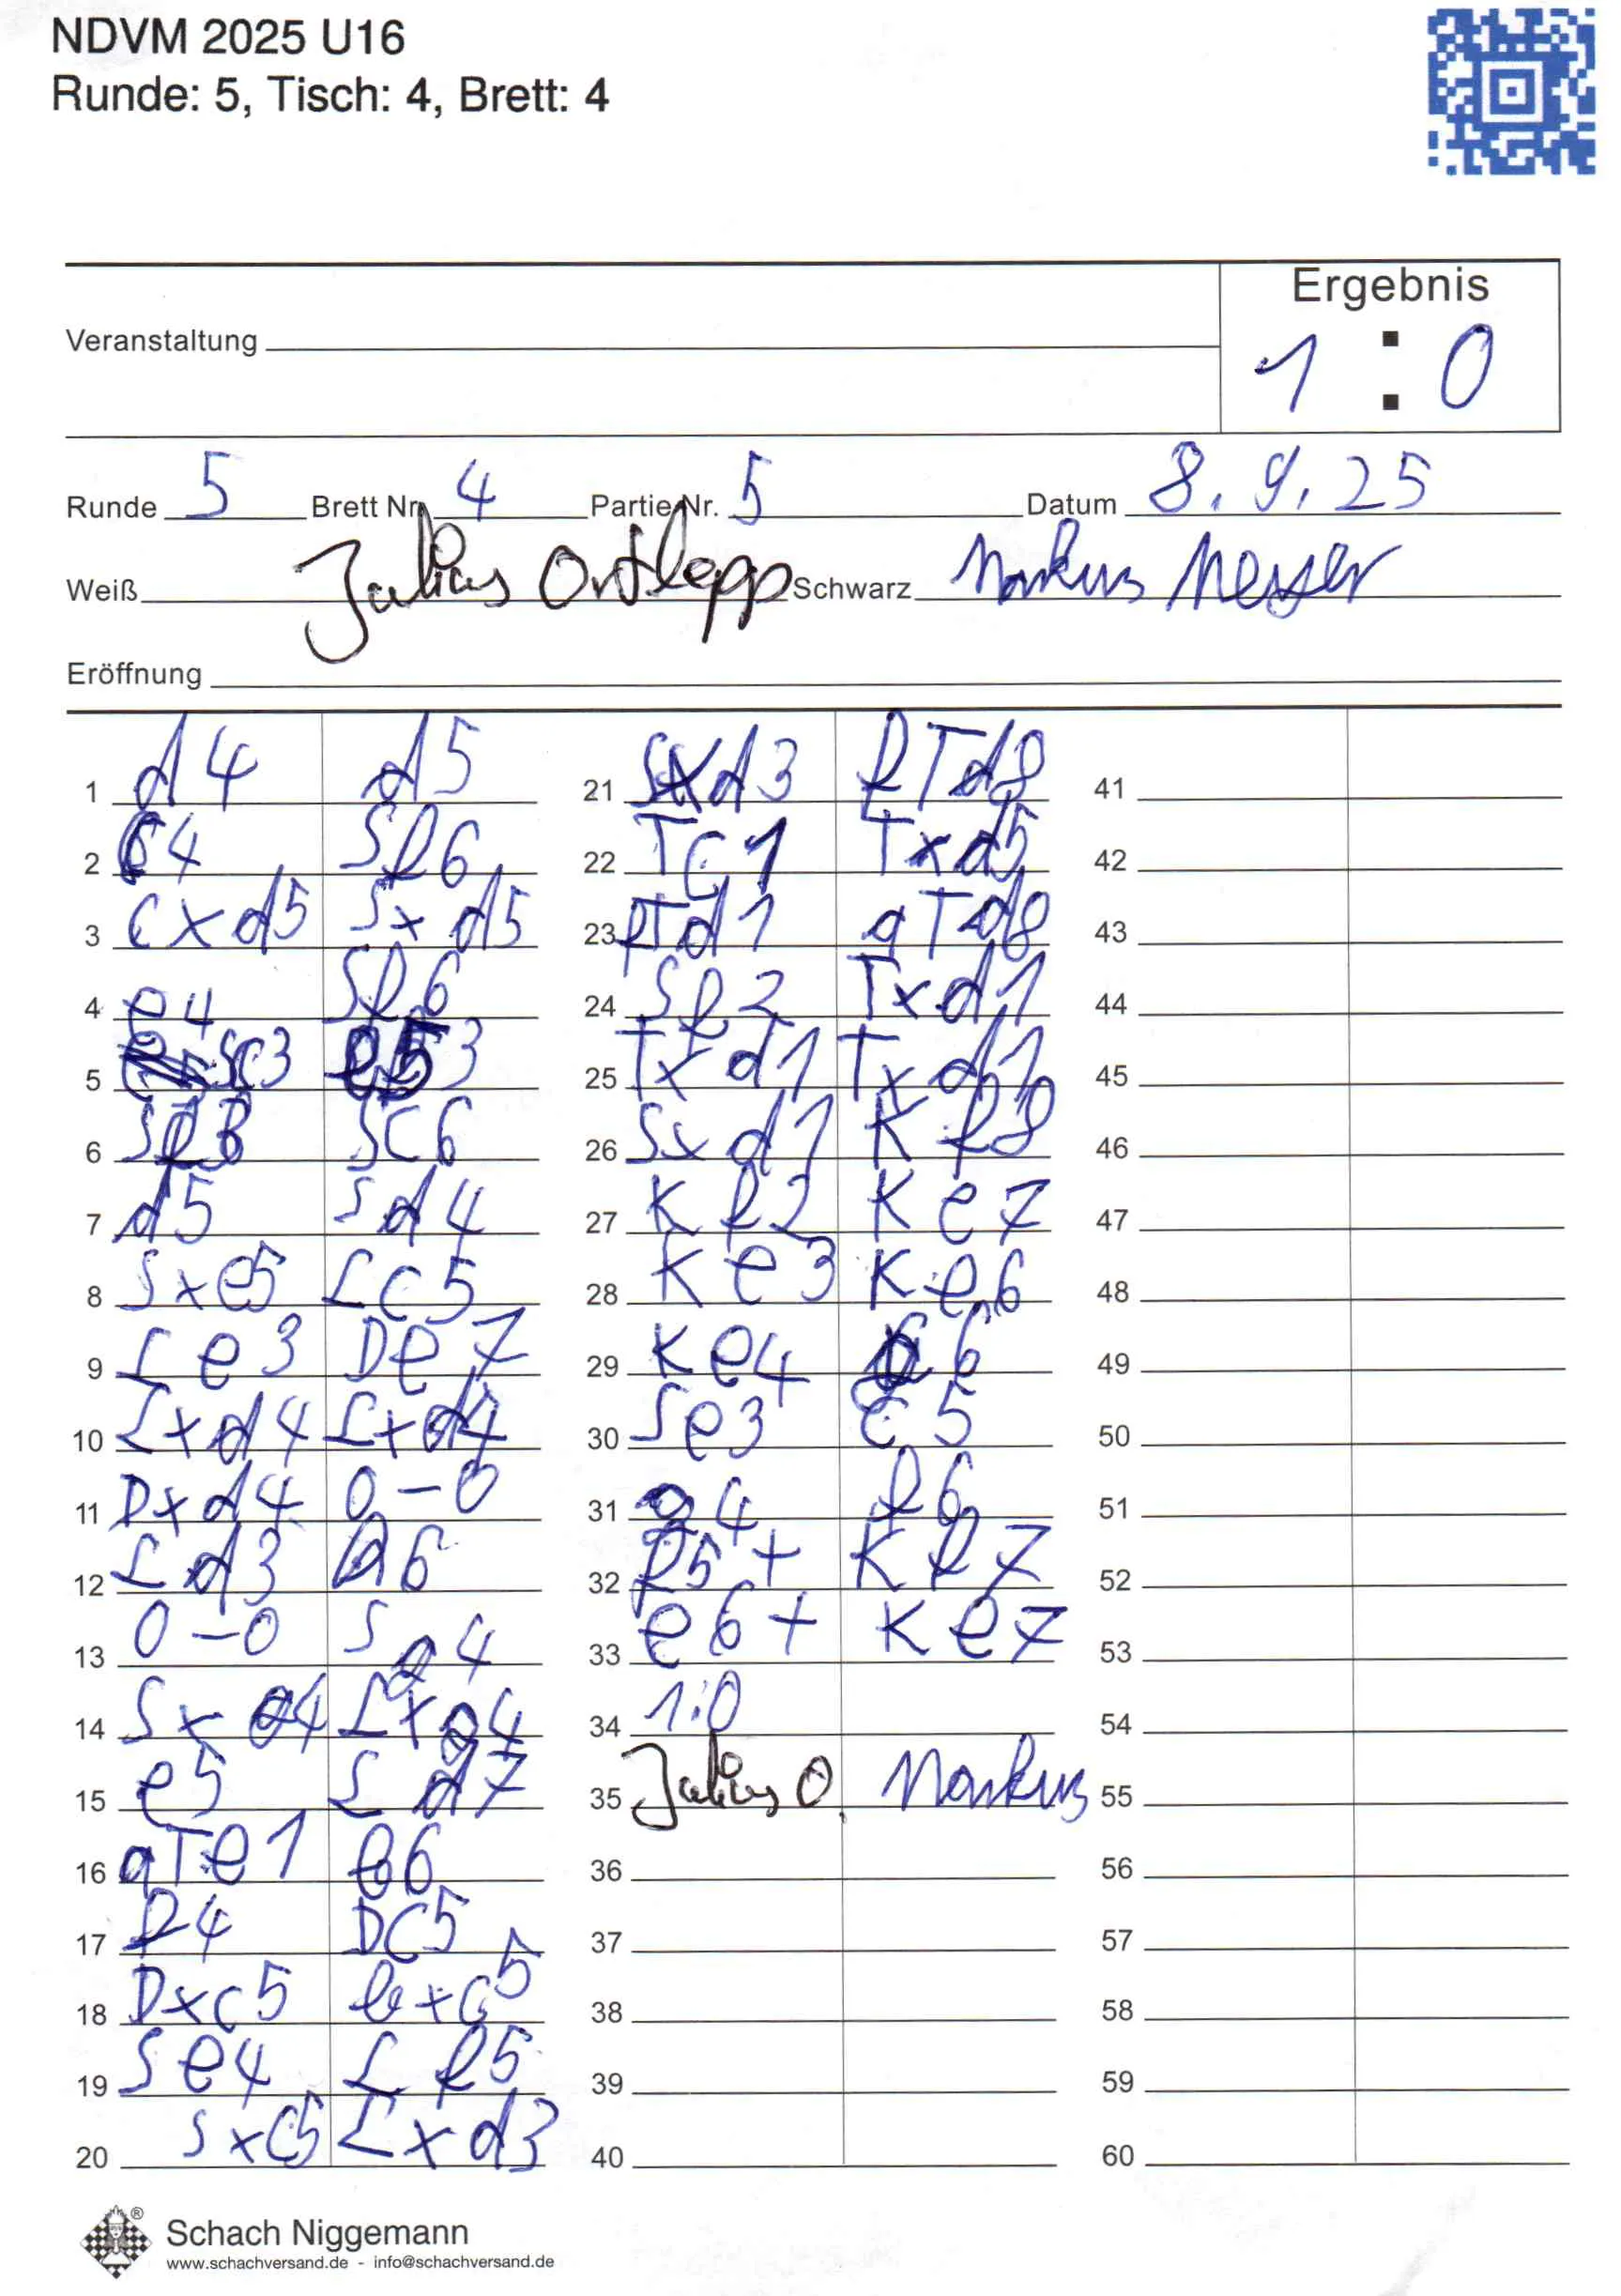 NDVM 2025 U16
Runde: 5, Tisch: 4, Brett: 4
Ergebnis
Veranstaltung
1 : 0
Runde 5 Brett Nr. 4 Partie Nr. 5 Datum 8.9.25
Weiß Julius Ortlepp Schwarz Markus
Eröffnung
1 d4 d5
2 c4 Sf6
3 cxd5 Sxd5
4 e4 Sf6
5 Sc3 e5
6 Sf3 Sc6
7 d5 Sd4
8 Sxe5 Lc5
9 Le3 De7
10 Lxd4 Lxd4
11 Dxd4 0-0
12 Ld3 a6
13 0-0 Sg4
14 Sxg4 Lxg4
15 e5 Ld7
16 aTe1 b6
17 f4 Dc5
18 Dxc5 bxc5
19 Se4 Lf5
20 Sxc5 Lxd3
21 Sxd3 fTd8
22 Tc1 Txd5
23 fTd1 aTd8
24 Sf2 Txd1
25 Txd1 Txd1
26 Sxd1 Kf8
27 Kf2 Ke7
28 Ke3 Ke6
29 Ke4 6
30 Se3 c5
31 g4 f6
32 f5+ Kf7
33 e6+ Ke7
34 1:0
35 Julius O. Markus
36
37
38
39
40
41
42
43
44
45
46
47
48
49
50
51
52
53
54
55
56
57
58
59
60
Schach Niggemann
www.schachversand.de - info@schachversand.de